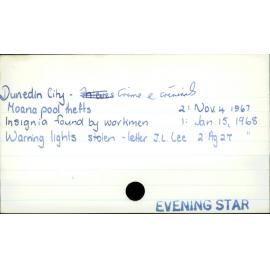 Dunedin City - Crime & criminals
Moana pool thefts 2: Nov. 4 1967
Insignia found by workmen 1: Jan. 15, 1968
Warning lights stolen - letter J.L. Lee 2: Ag 27 "
EVENING STAR